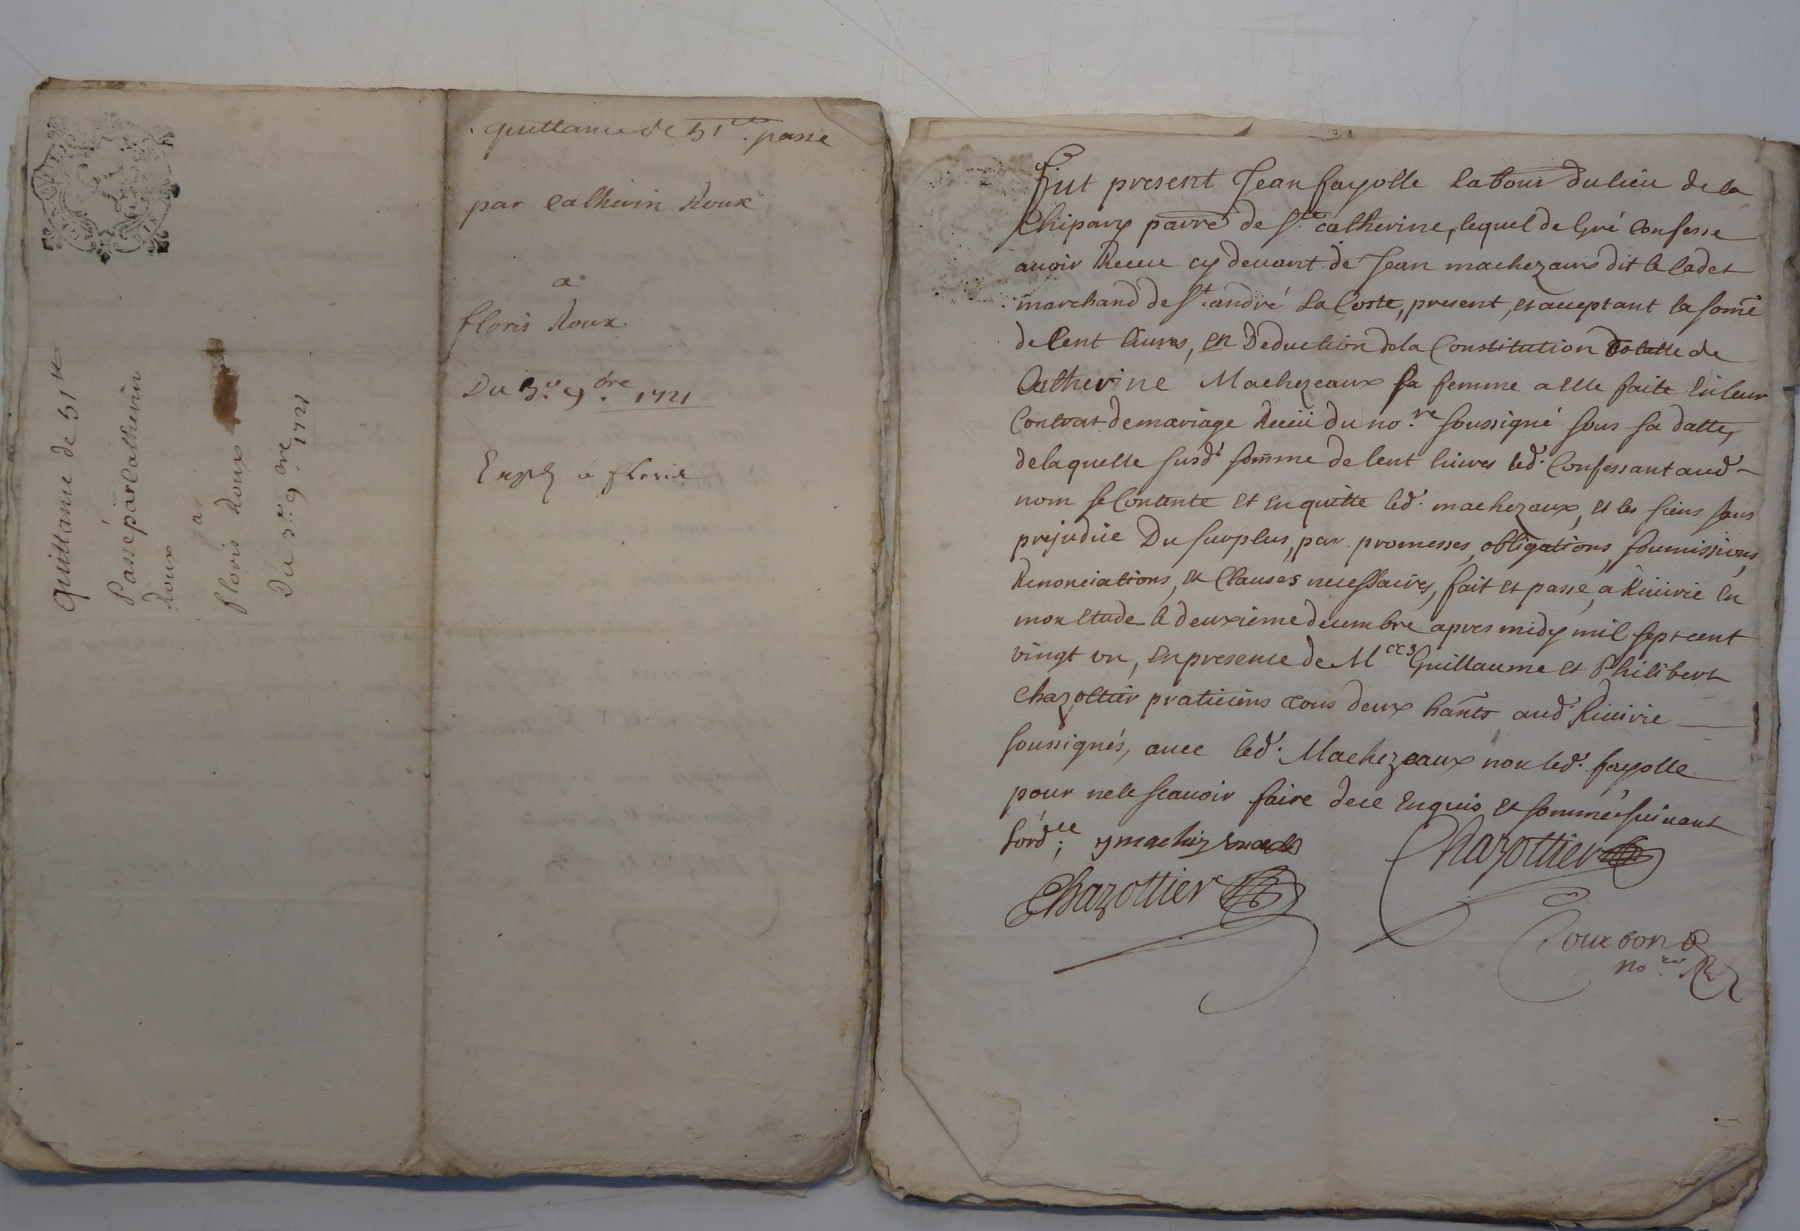 Quittance de 51 tt
Passé par Catherin
Roux
a
Floris Roux
Du 3e 9bre 1721
quittance de 51 tt passé
par Catherin Roux
a
floris Roux
Du 3e 9bre 1721
Expd a floris
Fut present Jean fayolle labour du lieu de la
Chipary parre de Ste catherine, lequel de Gré Confesse
avoir Receu cy devant de Jean machezaux dit le Cadet
marchand de St andré la Coste, present, et acceptant la some
de Cent livres, en Deduction de la Constitution de
Catherine Machezeaux sa femme a elle faite en leur
Contrat de mariage Receü du nore soussigné sous sa datte,
de laquelle susde somme de Cent livres led. Confessant aud
nom se Contente et en quitte led. machezaux, et les siens sans
prejudice Du surplus, par promesses, obligations, soumissions,
Renonciations, et Clauses necessaires, fait et passé, a Riverie en
mon etude le deuxieme decembre apres midy mil sept cent
vingt un, en presence de Mes Guillaume et Philibert
Chazottier praticiens tous deux hants aud. Riverie
soussignés, avec led. Machezeaux non led. fayolle
pour ne le scavoir faire de ce Enquis et sommé suivant
lordce;
Chazottier
Chazottier
Courbon
nore R